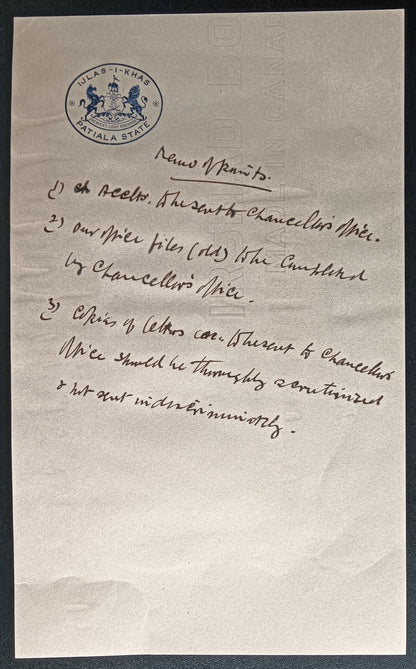 IJLAS-I-KHAS
PATIALA STATE
Memo of Points.
1) Accts. to be sent to Chancellor's office.
2) Our office files (old) to be completed
by Chancellor's office.
3) Copies of letters to be sent to Chancellor's
office should be thoroughly scrutinized
& not sent indiscriminately.